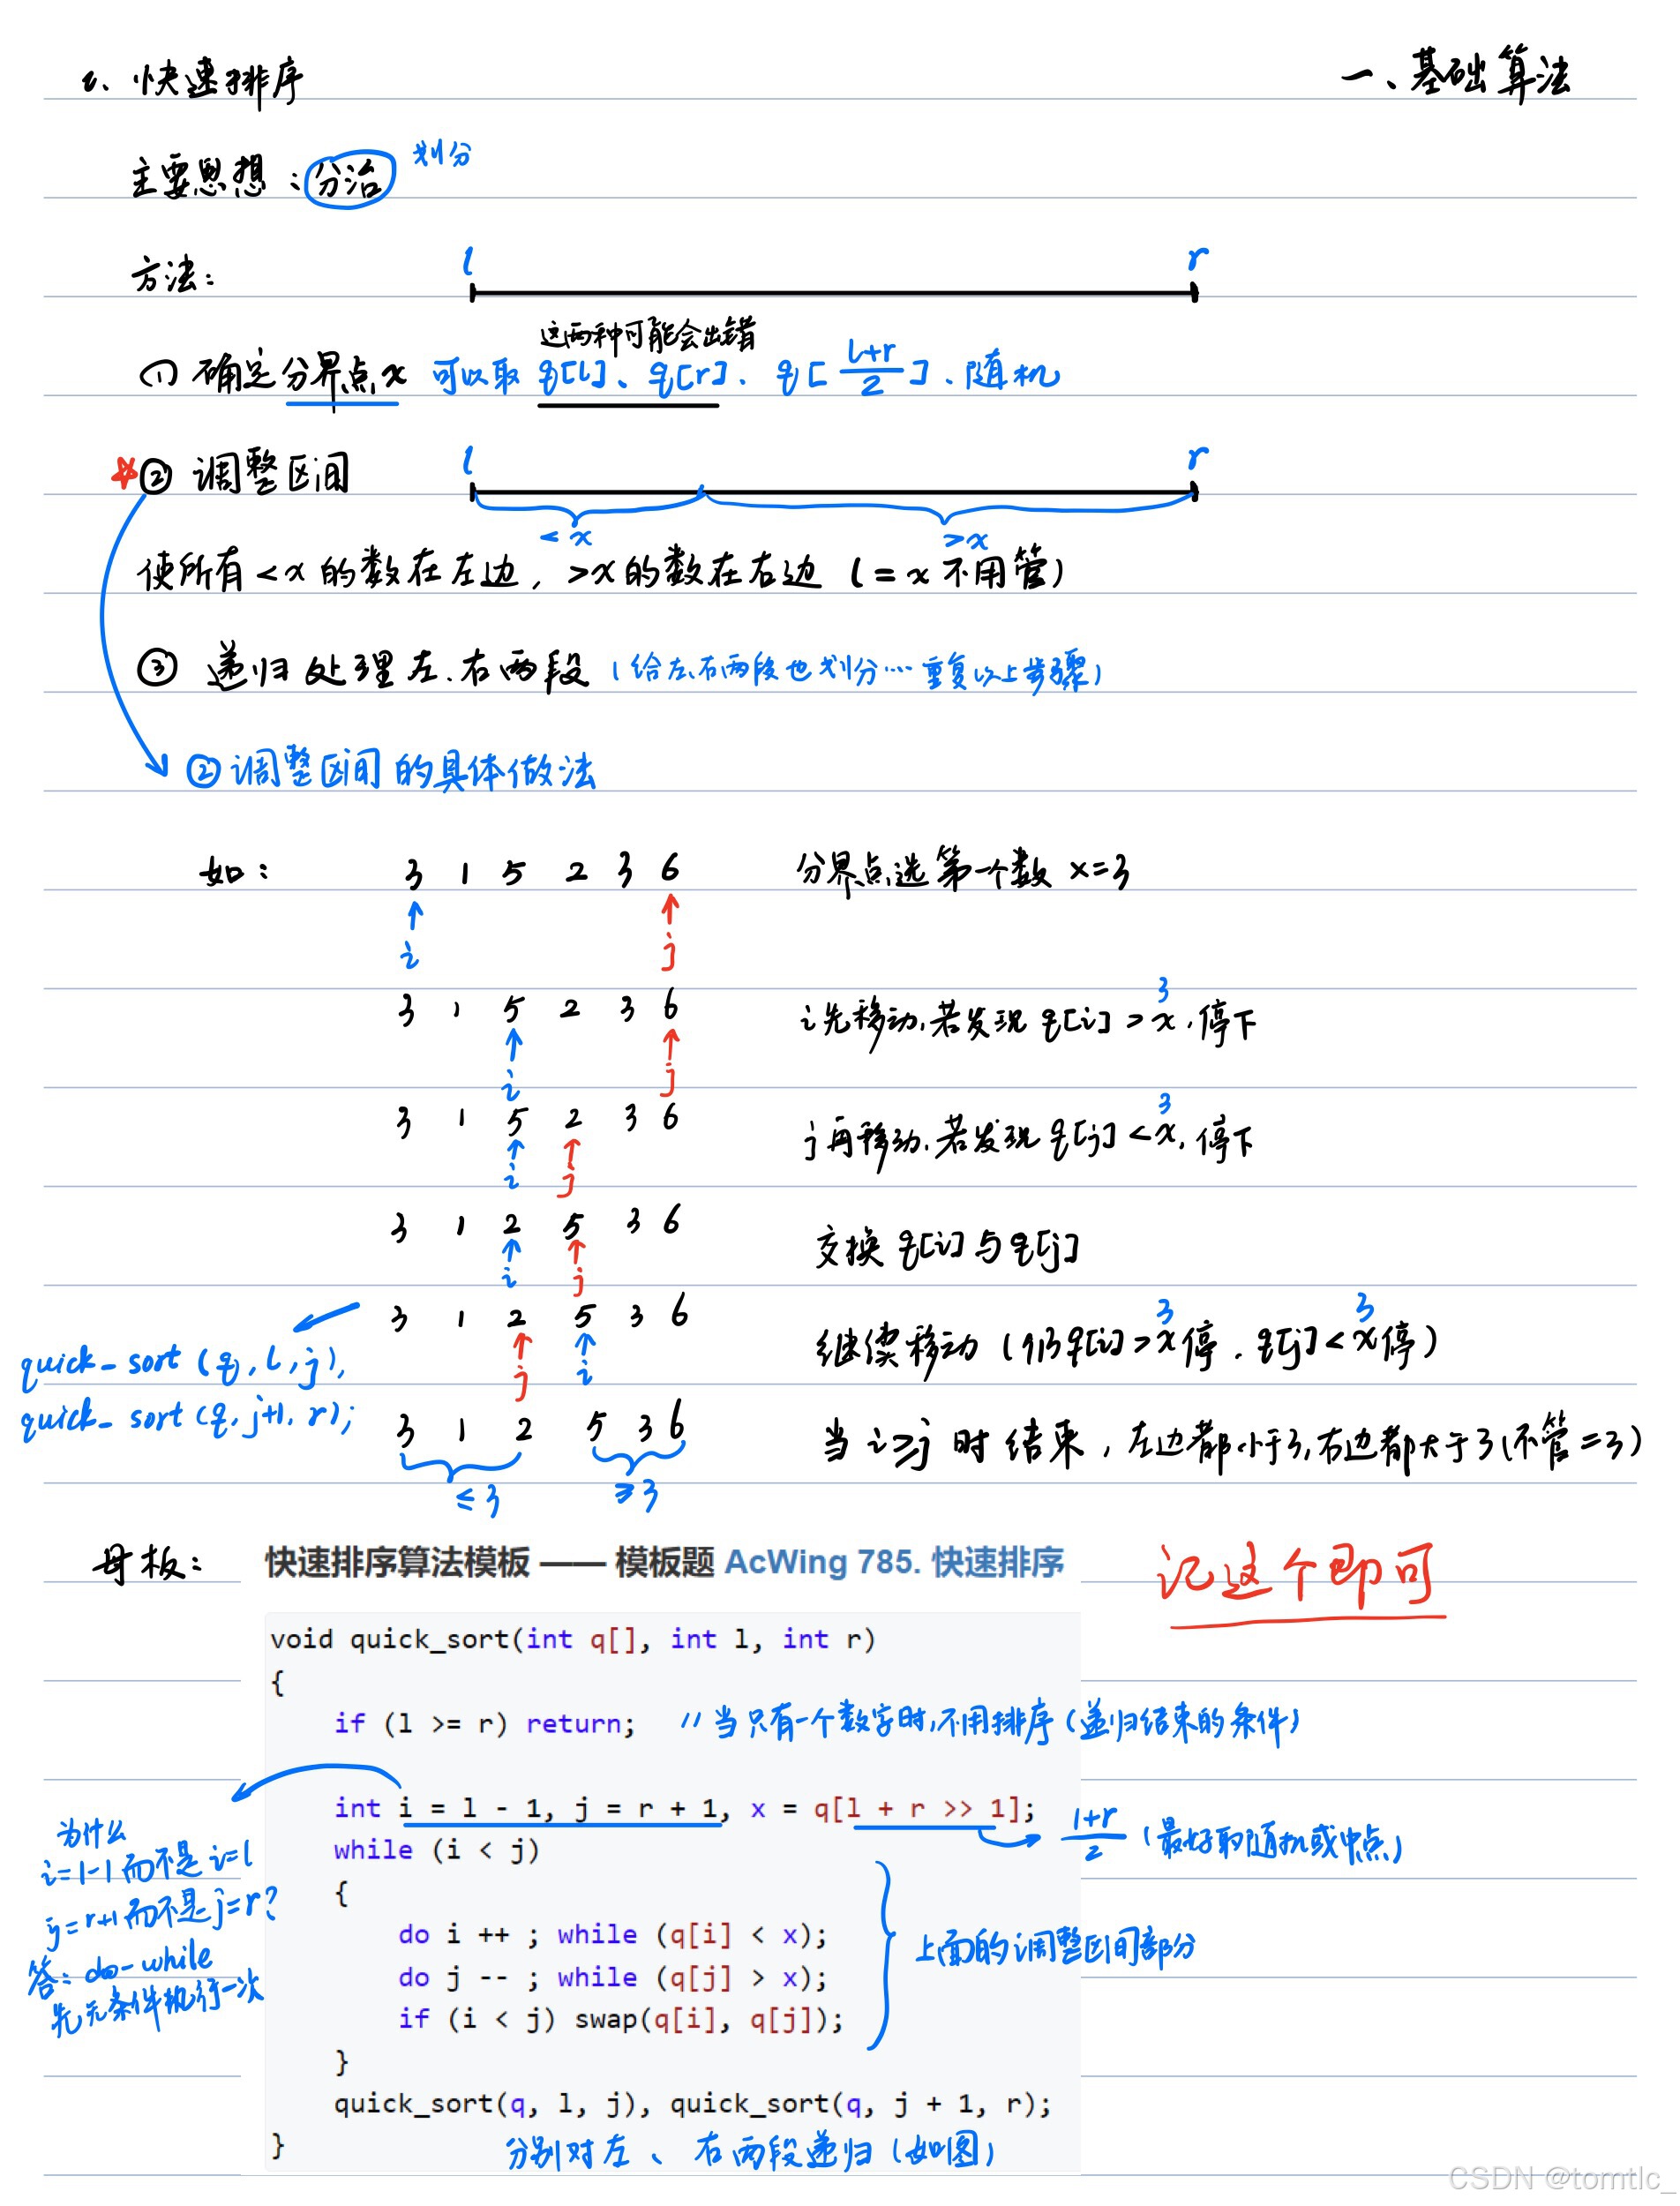 一、基础算法
1、快速排序
主要思想：分治 划分
方法：
l r
这两种可能会出错
(1) 确定分界点x 可以取 q[l]、q[r]、q[(l+r)/2]、随机
l r
☆② 调整区间
<x >x
使所有<x的数在左边，>x的数在右边（=x不用管）
③ 递归处理左、右两段（给左、右两段也划分…重复以上步骤）
②调整区间的具体做法
如： 3 1 5 2 3 6 分界点选第一个数 x=3
i j
3 1 5 2 3 6 i先移动，若发现q[i]>x，停下
3
i j
3 1 5 2 3 6 j再移动，若发现q[j]<x，停下
3
i j
3 1 2 5 3 6 交换q[i]与q[j]
i j
3 1 2 5 3 6 继续移动（仍q[i]>x停，q[j]<x停）
3 3
j i
quick_sort(q, l, j),
quick_sort(q, j+1, r);
3 1 2 5 3 6 当i≥j时结束，左边都小于3，右边都大于3（不管=3）
≤3 ≥3
母板： 快速排序算法模板 —— 模板题 AcWing 785. 快速排序
记这个即可
void quick_sort(int q[], int l, int r)
{
if (l >= r) return; //当只有一个数字时，不用排序（递归结束的条件）
int i = l - 1, j = r + 1, x = q[l + r >> 1];
(l+r)/2（最好取随机或中点）
while (i < j)
{
do i ++ ; while (q[i] < x);
do j -- ; while (q[j] > x);
if (i < j) swap(q[i], q[j]);
}
上面的调整区间部分
quick_sort(q, l, j), quick_sort(q, j + 1, r);
}
分别对左、右两段递归（如图）
为什么
i=l-1而不是i=l
j=r+1而不是j=r？
答：do-while
先无条件执行一次
CSDN @tomtlc_